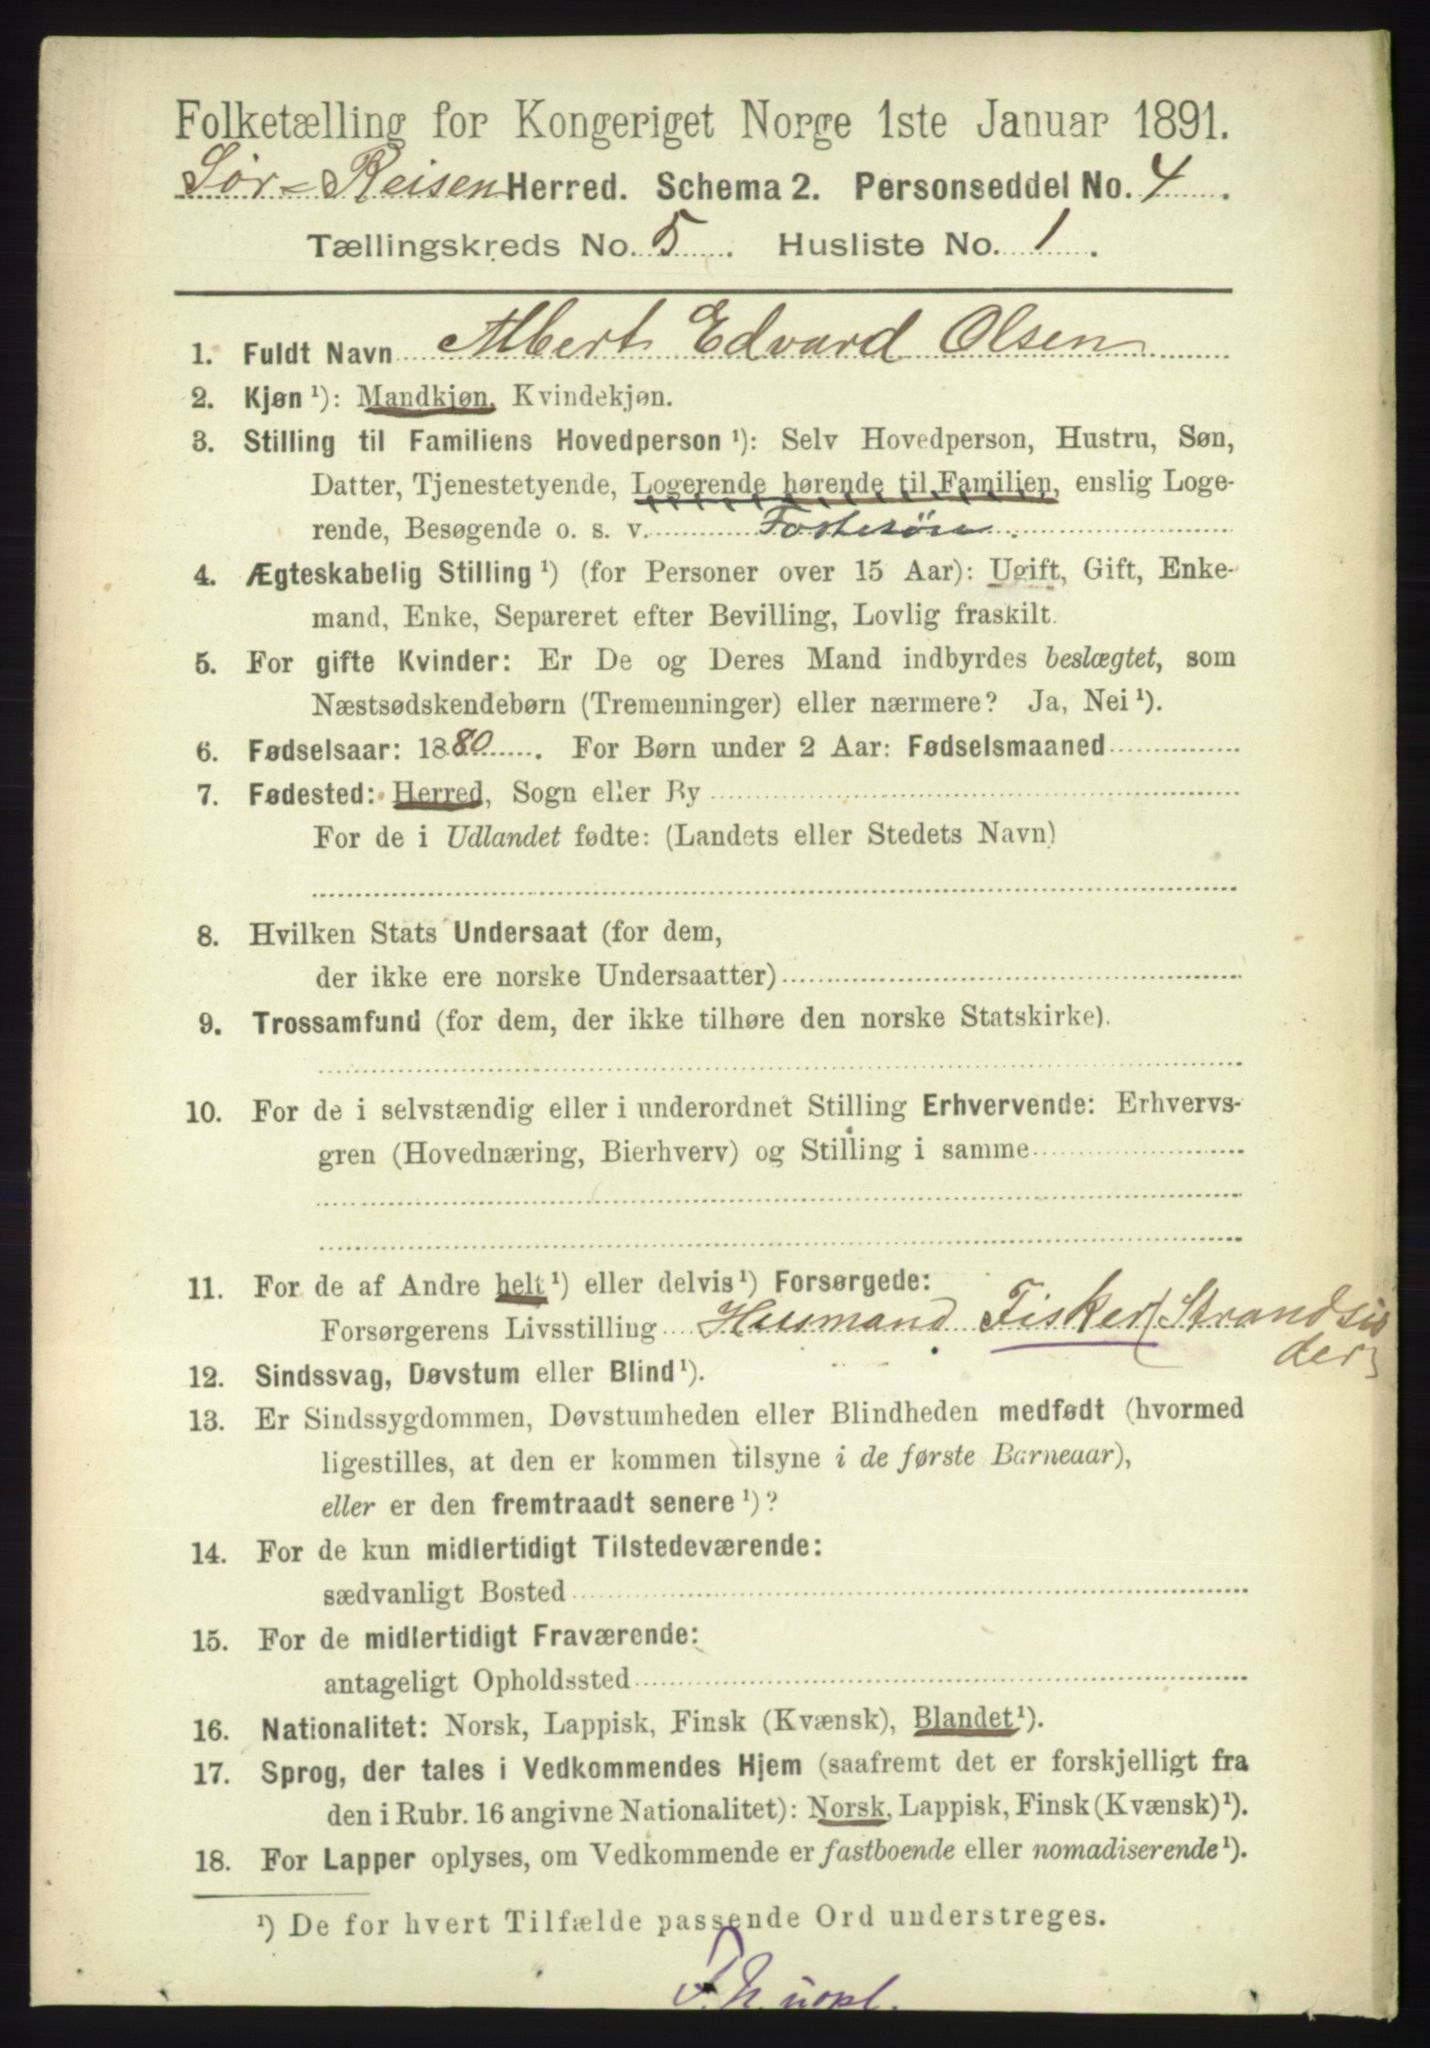 Folketælling for Kongeriget Norge 1ste Januar 1891.
Sør-Reisen Herred. Schema 2. Personseddel No. 4.
Tællingskreds No. 5. Husliste No. 1.
1. Fuldt Navn Albert Edvard Olsen
2. Kjøn ¹): Mandkjøn, Kvindekjøn.
3. Stilling til Familiens Hovedperson ¹): Selv Hovedperson, Hustru, Søn,
Datter, Tjenestetyende, Logerende hørende til Familien, enslig Loge-
rende, Besøgende o. s. v. Fostersøn.
4. Ægteskabelig Stilling ¹) (for Personer over 15 Aar): Ugift, Gift, Enke-
mand, Enke, Separeret efter Bevilling, Lovlig fraskilt.
5. For gifte Kvinder: Er De og Deres Mand indbyrdes beslægtet, som
Næstsødskendebørn (Tremenninger) eller nærmere? Ja, Nei ¹).
6. Fødselsaar: 1880. For Børn under 2 Aar: Fødselsmaaned
7. Fødested: Herred, Sogn eller By
For de i Udlandet fødte: (Landets eller Stedets Navn)
8. Hvilken Stats Undersaat (for dem,
der ikke ere norske Undersaatter)
9. Trossamfund (for dem, der ikke tilhøre den norske Statskirke).
10. For de i selvstændig eller i underordnet Stilling Erhvervende: Erhvervs-
gren (Hovednæring, Bierhverv) og Stilling i samme
11. For de af Andre helt ¹) eller delvis ¹) Forsørgede:
Forsørgerens Livsstilling Husmand Fisker (Strandsid
der)
12. Sindssvag, Døvstum eller Blind ¹).
13. Er Sindssygdommen, Døvstumheden eller Blindheden medfødt (hvormed
ligestilles, at den er kommen tilsyne i de første Barneaar),
eller er den fremtraadt senere ¹)?
14. For de kun midlertidigt Tilstedeværende:
sædvanligt Bosted
15. For de midlertidigt Fraværende:
antageligt Opholdssted
16. Nationalitet: Norsk, Lappisk, Finsk (Kvænsk), Blandet ¹).
17. Sprog, der tales i Vedkommendes Hjem (saafremt det er forskjelligt fra
den i Rubr. 16 angivne Nationalitet): Norsk, Lappisk, Finsk (Kvænsk) ¹).
18. For Lapper oplyses, om Vedkommende er fastboende eller nomadiserende ¹).
¹) De for hvert Tilfælde passende Ord understreges.